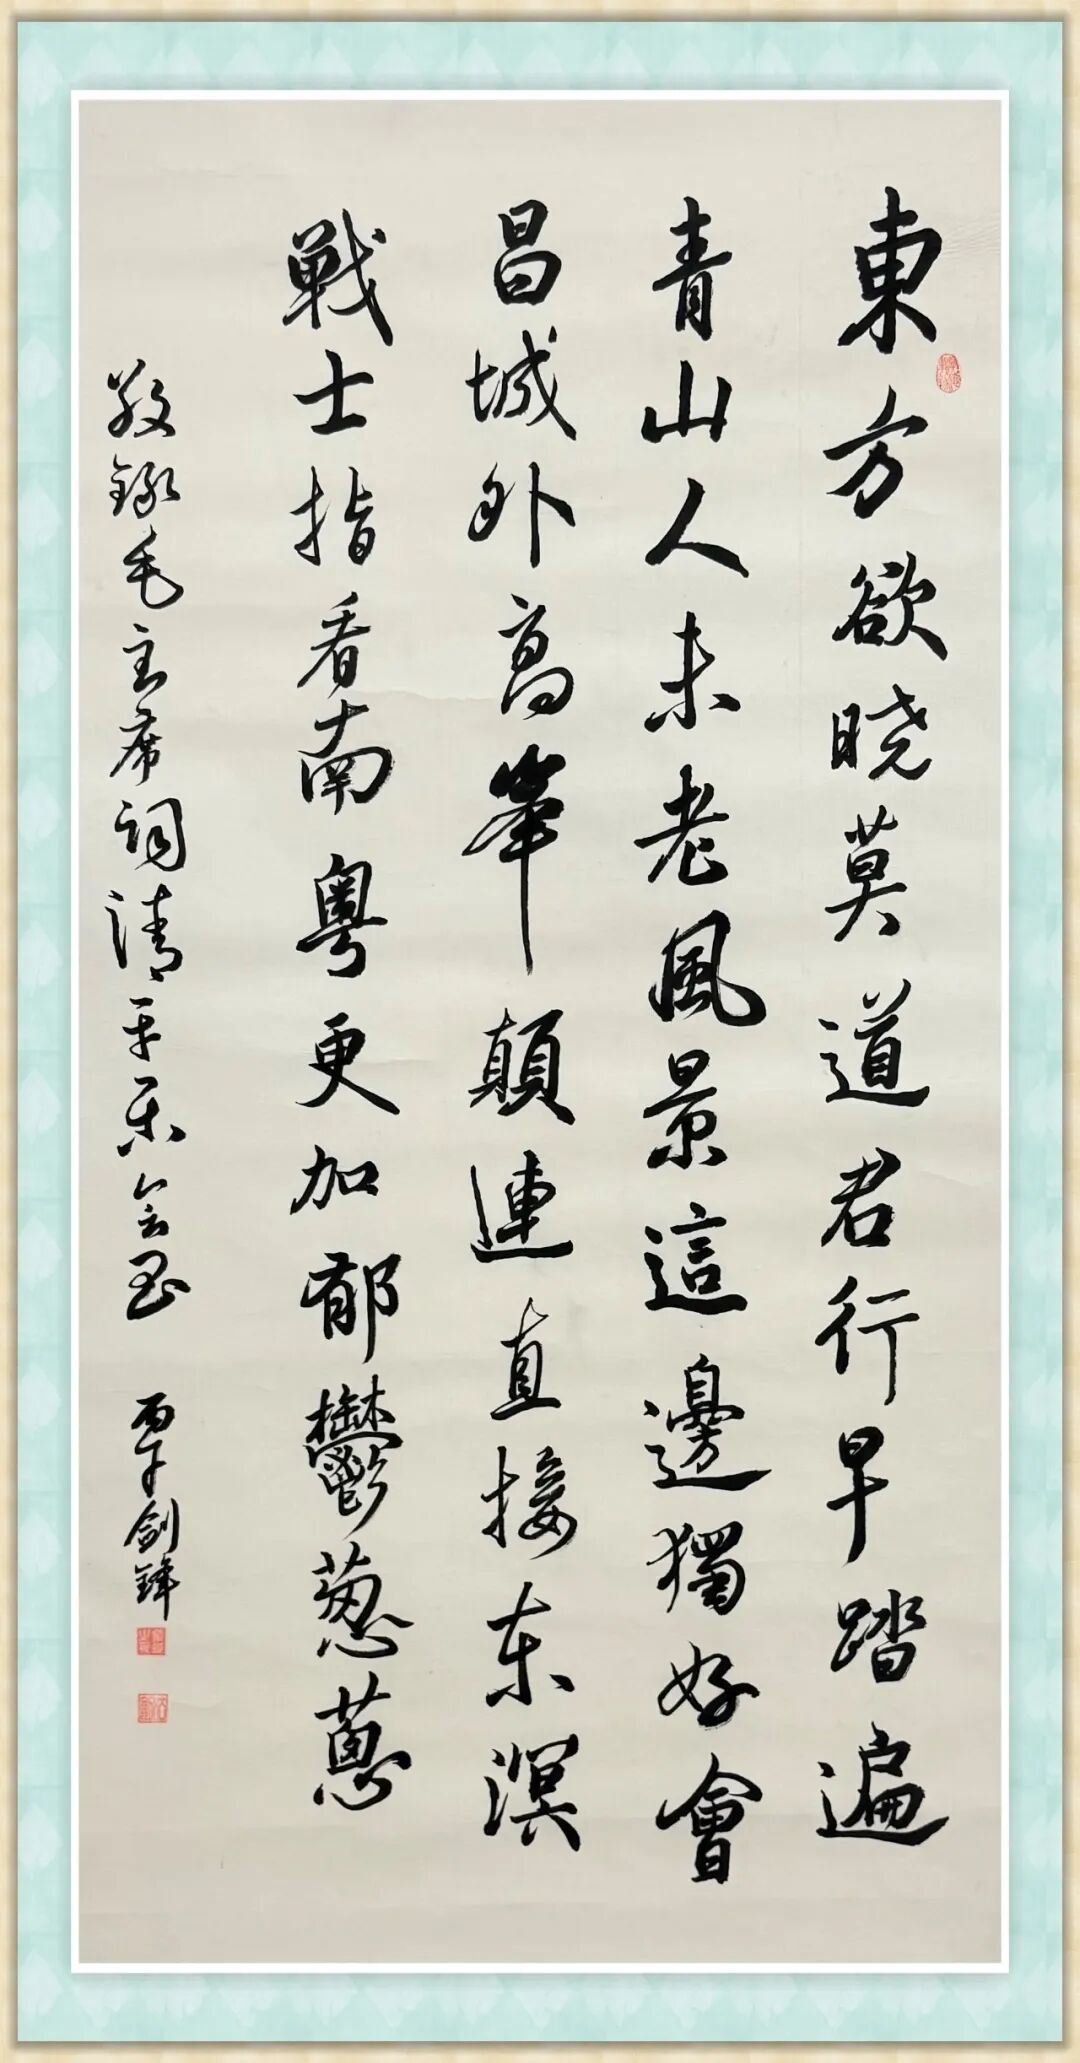 東方欲晓莫道君行早踏遍
青山人未老風景這邊獨好會
昌城外高峯顛連直接东溟
戰士指看南粤更加郁鬱葱蔥
敬録毛主席词清平乐会昌
丙午剑锋